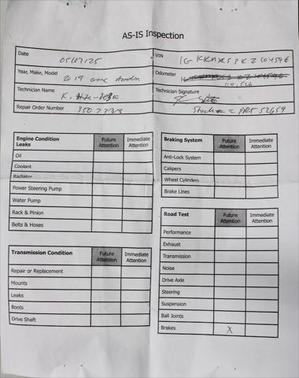 AS-IS Inspection
Date
05/07/25
VIN
Year, Make, Model
2019 GMC
Odometer
Technician Name
Technician Signature
Repair Order Number
Engine Condition
Leaks
Future
Attention
Immediate
Attention
Oil
Coolant
Radiator
Power Steering Pump
Water Pump
Rack & Pinion
Belts & Hoses
Transmission Condition
Future
Attention
Immediate
Attention
Repair or Replacement
Mounts
Leaks
Boots
Drive Shaft
Braking System
Future
Attention
Immediate
Attention
Anti-Lock System
Calipers
Wheel Cylinders
Brake Lines
Road Test
Future
Attention
Immediate
Attention
Performance
Exhaust
Transmission
Noise
Drive Axle
Steering
Suspension
Ball Joints
Brakes X